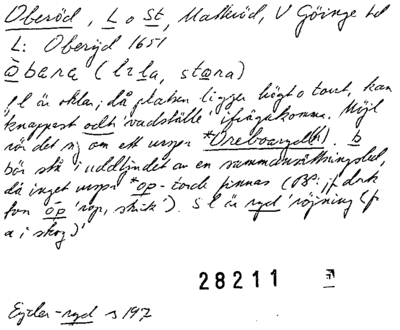 Oberöd, L o St, Matteröd, V Göinge hd
L: Oberÿd 1651
åbara (lıla, stara)
f l är oklar; då platsen ligger högt o torrt, kan
knappast och 'vadställe' ifrågakomma. Möjl
rör det sj om ett urspr *Oreboaryd(h). b
bör stå i uddljudet av en sammansättningsled,
då inget urspr *op- torde finnas (Bl:, jf dock
fvn óp 'rop, skrik'). S l är ryd 'röjning (f
a i skog)'
28211
Ejder-ryd s 197